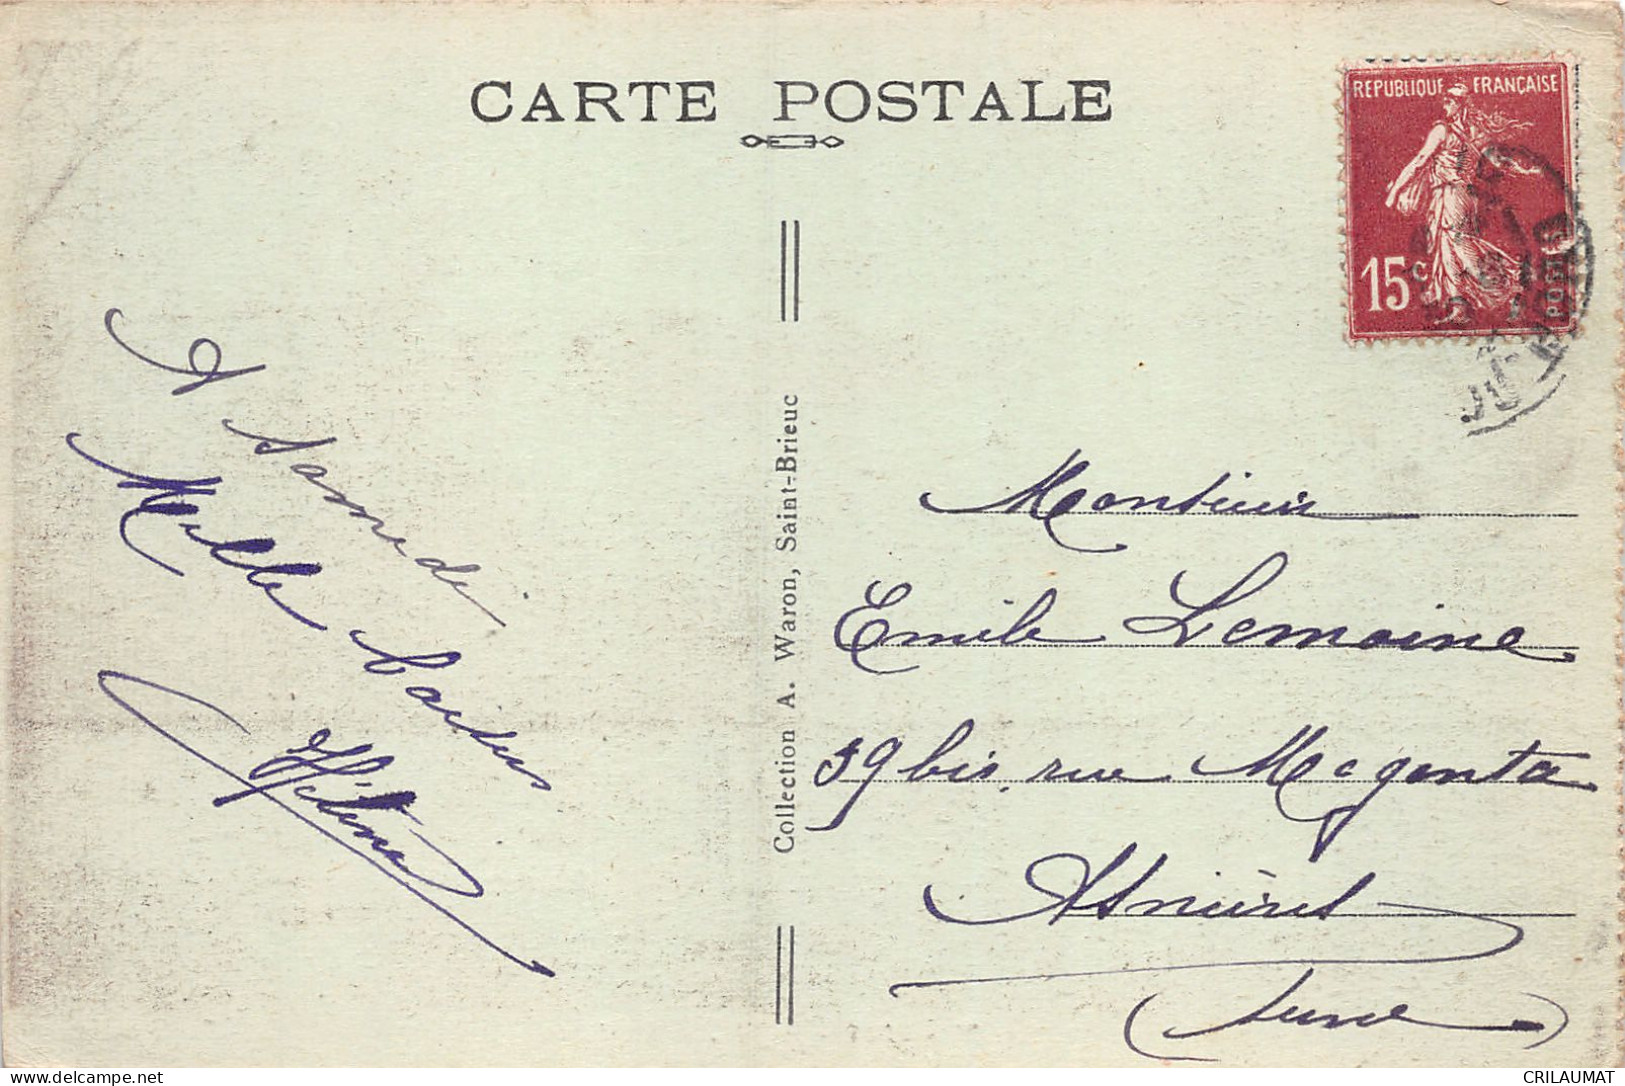 CARTE POSTALE
REPUBLIQUE FRANÇAISE
15c
A samedi
Mille baisers
Hélène
Collection A. Waron, Saint-Brieuc
Monsieur
Emile Lemoine
39 bis, rue Magenta
Asnières
(Seine)
delcampe.net
CRILAUMAT